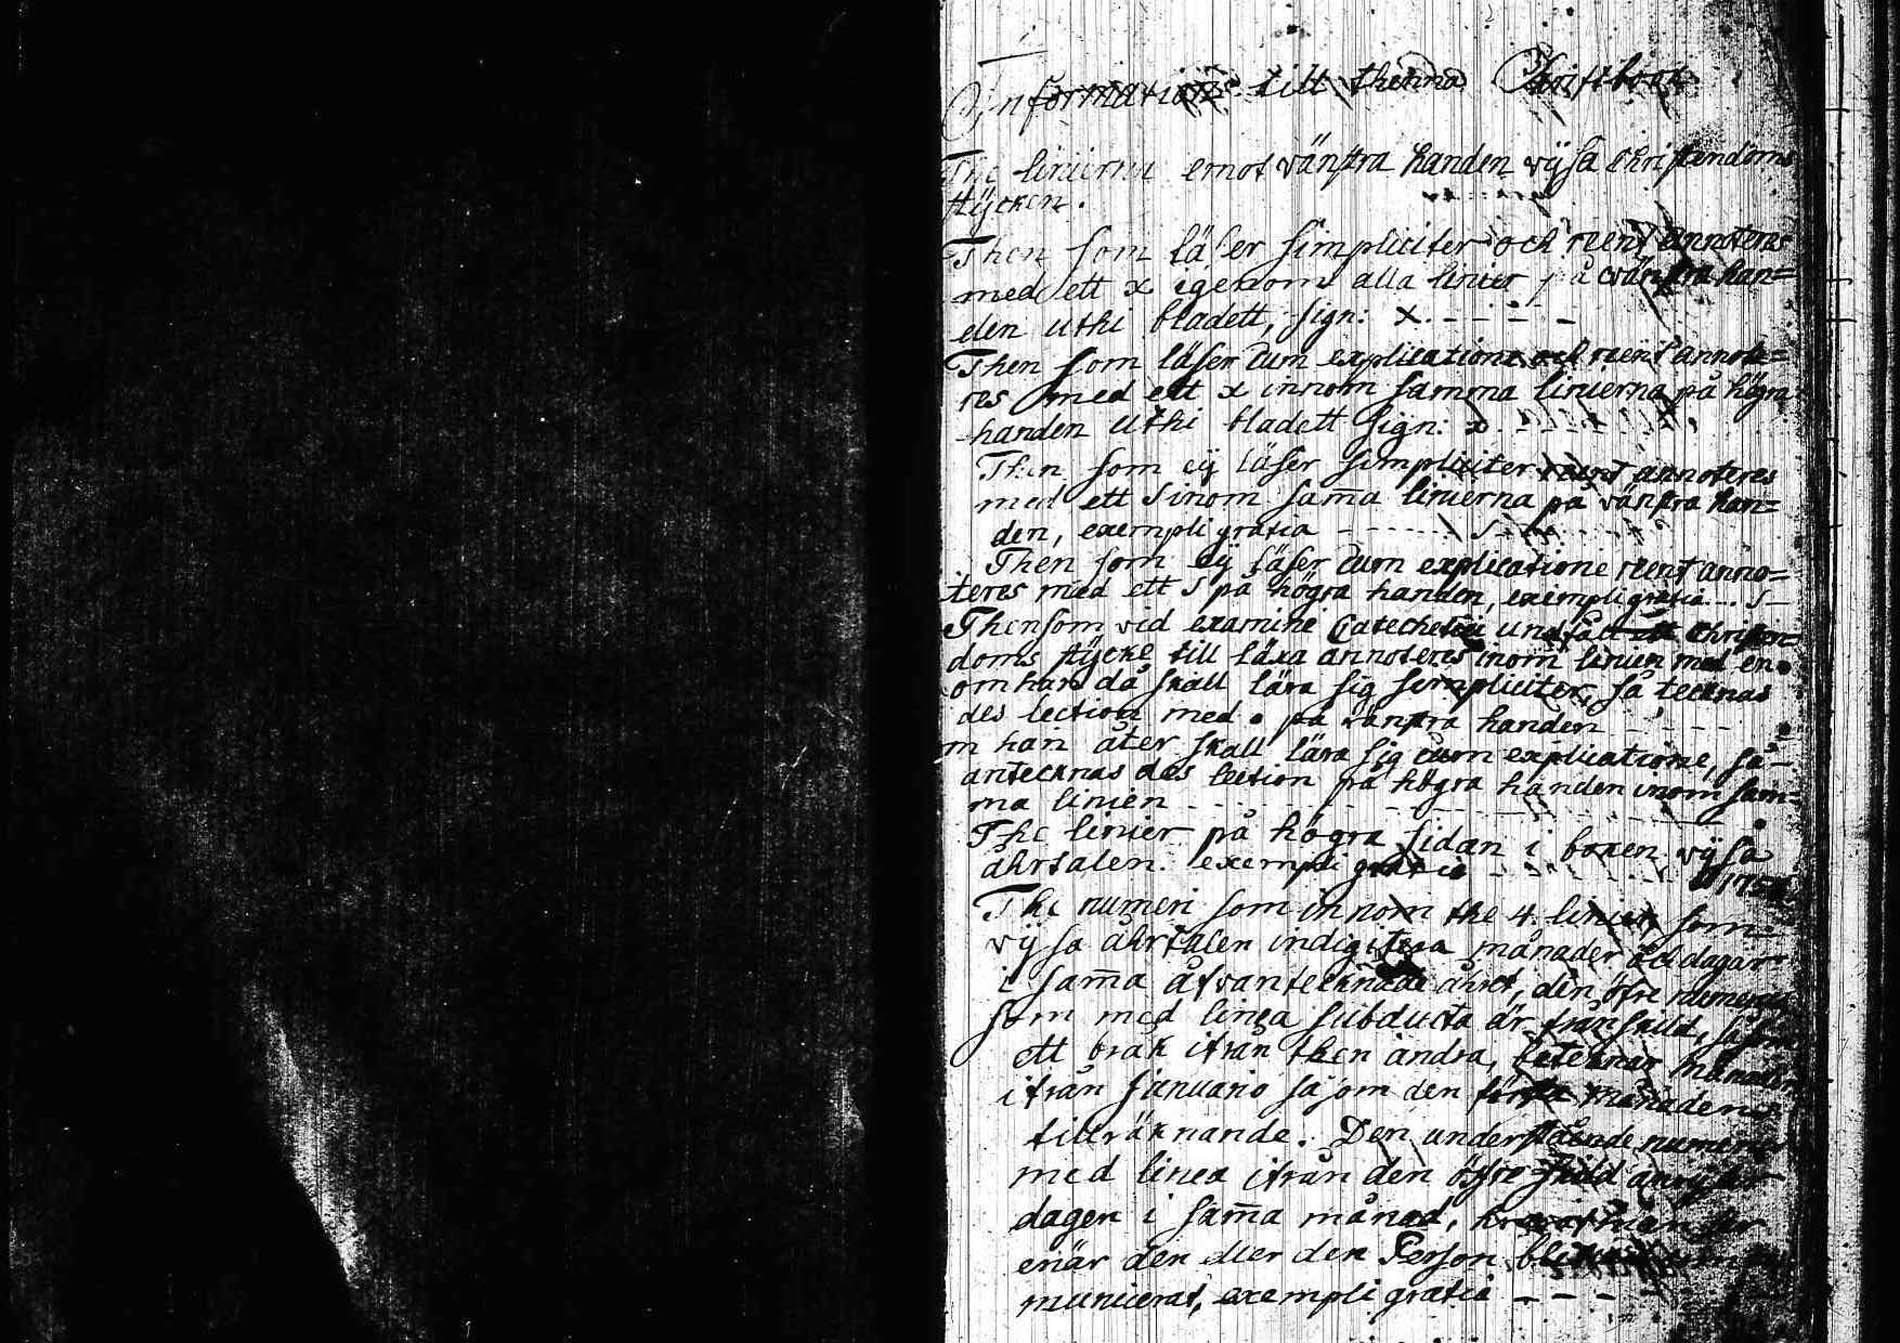 Information till thenna Skriftbook
The linierna emot vänstra handen vijsa Christendoms
stycken.
Then som läser simpliciter och reent annoteras
med ett x igenom alla linier på vänstra han=
den uthi bladett, sign: x. - - - - -
Then som läser cum explicatione och reent annote=
res med ett x innom samma linierna på högra
handen uthi bladett sign: x
Then som eij läser simpliciter reent annoteres
med ett s inom sam̄a linierna på vänstra han=
den, exempli gratia - - - - - s
Then som eij läser cum explicatione reent anno=
teres med ett s på högra handen, exempli gratia... s
Then som vid examine Catechetici undfått ett Christen=
doms stycke till läxa annoteres inom linien med en •
om han då skall lära sig simpliciter, så tecknas
des lection med • på vänstra handen - - - - •
m han åter skall lära sig cum explicatione, så
antecknas des lection på högra handen inom sam=
ma linien - - - - - •
The linier på högra sidan i boken vijsa
åhrtalen. exempli gratia - - - - 175
The numeri som innom the 4. linier som
vijsa åhrtalen indigitera månader och dagar
i sam̄a åfvantecknade åhret, den öfre numerus
som med linea subducta är från skild, såsom
ett bråk ifrån then andra, betecknar månaden
ifrån Januario såsom den första månaden
tillräknande. Den understående numerus
med linea ifrån den öfre skild anvijsar
dagen i sam̄a månad,
enär den eller den Person
municerat, exempli gratia - - - -